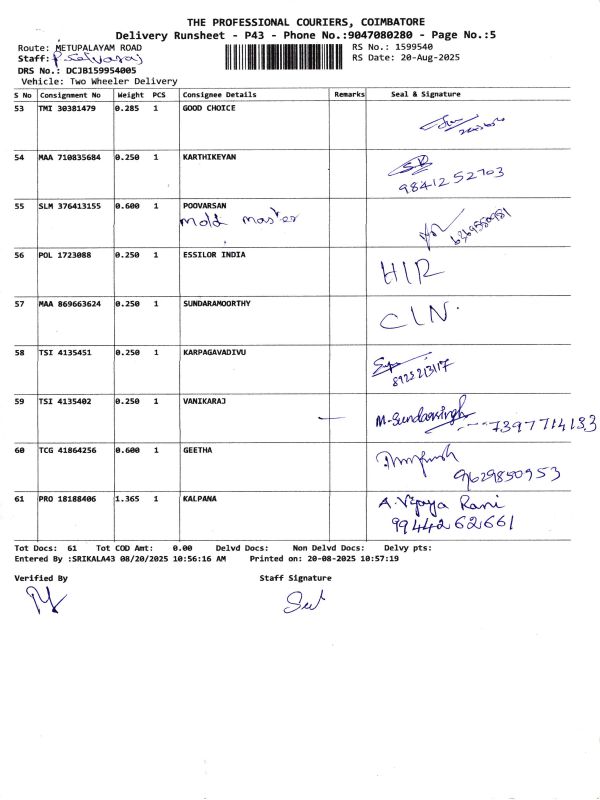 THE PROFESSIONAL COURIERS, COIMBATORE
Delivery Runsheet - P43 - Phone No.:9047080280 - Page No.:5
Route: METUPALAYAM ROAD RS No.: 1599540
Staff: P. Selvaraj RS Date: 20-Aug-2025
DRS No.: DCJB159954005
Vehicle: Two Wheeler Delivery
S No Consignment No Weight PCS Consignee Details Remarks Seal & Signature
53 TMI 30381479 0.285 1 GOOD CHOICE
54 MAA 710835684 0.250 1 KARTHIKEYAN
98412 52703
55 SLM 376413155 0.600 1 POOVARSAN
mold master
56 POL 1723088 0.250 1 ESSILOR INDIA HIR
57 MAA 869663624 0.250 1 SUNDARAMOORTHY CLN.
58 TSI 4135451 0.250 1 KARPAGAVADIVU
8925213117
59 TSI 4135402 0.250 1 VANIKARAJ M.Sundarsingh
7397714133
60 TCG 41864256 0.600 1 GEETHA
9629850953
61 PRO 18188406 1.365 1 KALPANA A. Vijaya Rani
9944262661
Tot Docs: 61 Tot COD Amt: 0.00 Delvd Docs: Non Delvd Docs: Delvy pts:
Entered By :SRIKALA43 08/20/2025 10:56:16 AM Printed on: 20-08-2025 10:57:19
Verified By Staff Signature